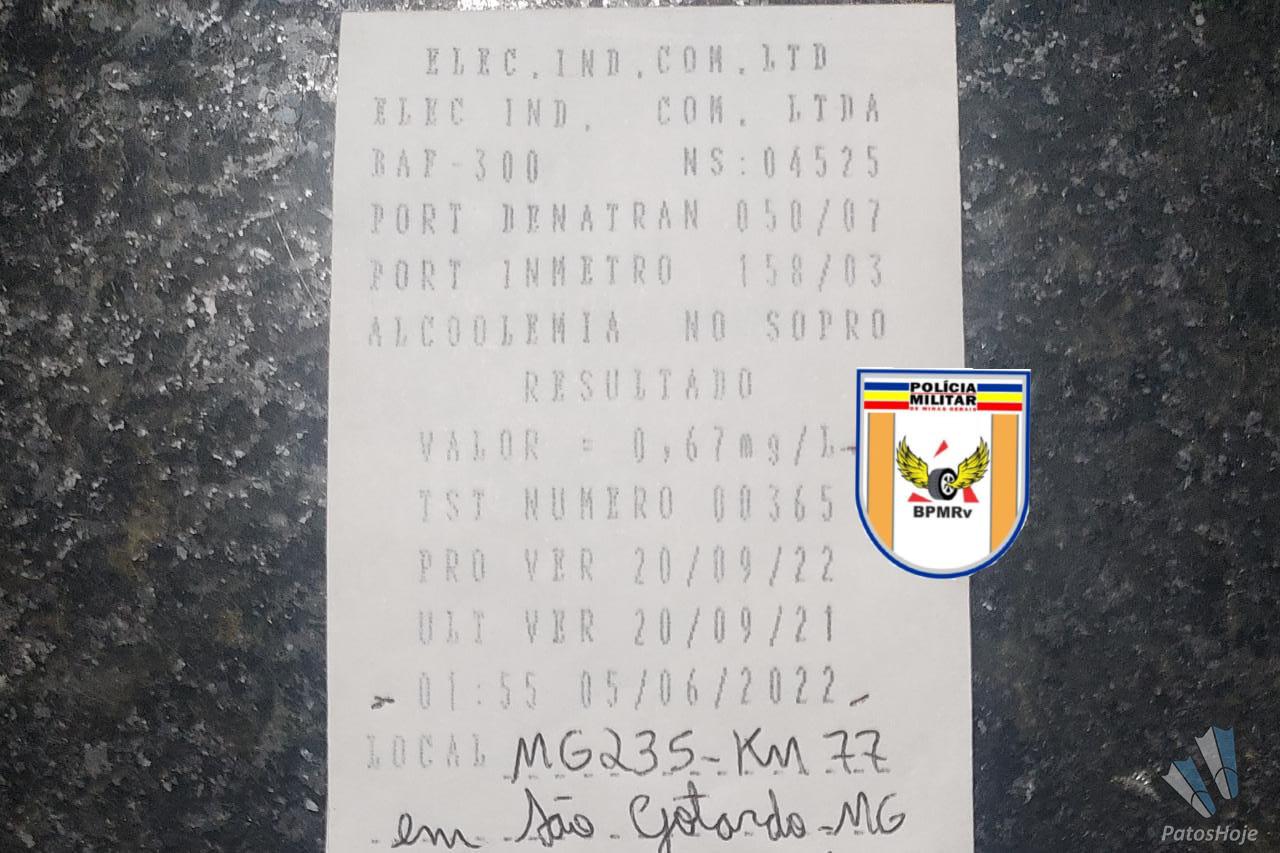 ELEC.IND.COM.LTD
ELEC IND. COM. LTDA
BAF-300 NS:04525
PORT DENATRAN 050/07
PORT INMETRO 158/03
ALCOOLEMIA NO SOPRO
RESULTADO
VALOR = 0,67mg/L
TST NUMERO 00365
PRO VER 20/09/22
ULT VER 20/09/21
01:55 05/06/2022
LOCAL MG235-KM 77
em São Gotardo-MG
POLÍCIA
MILITAR
DE MINAS GERAIS
BPMRv
PatosHoje